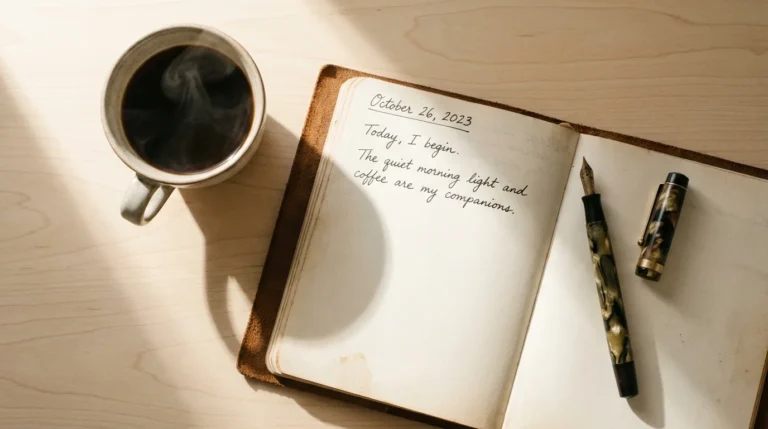 October 26, 2023
Today, I begin.
The quiet morning light and
coffee are my companions.